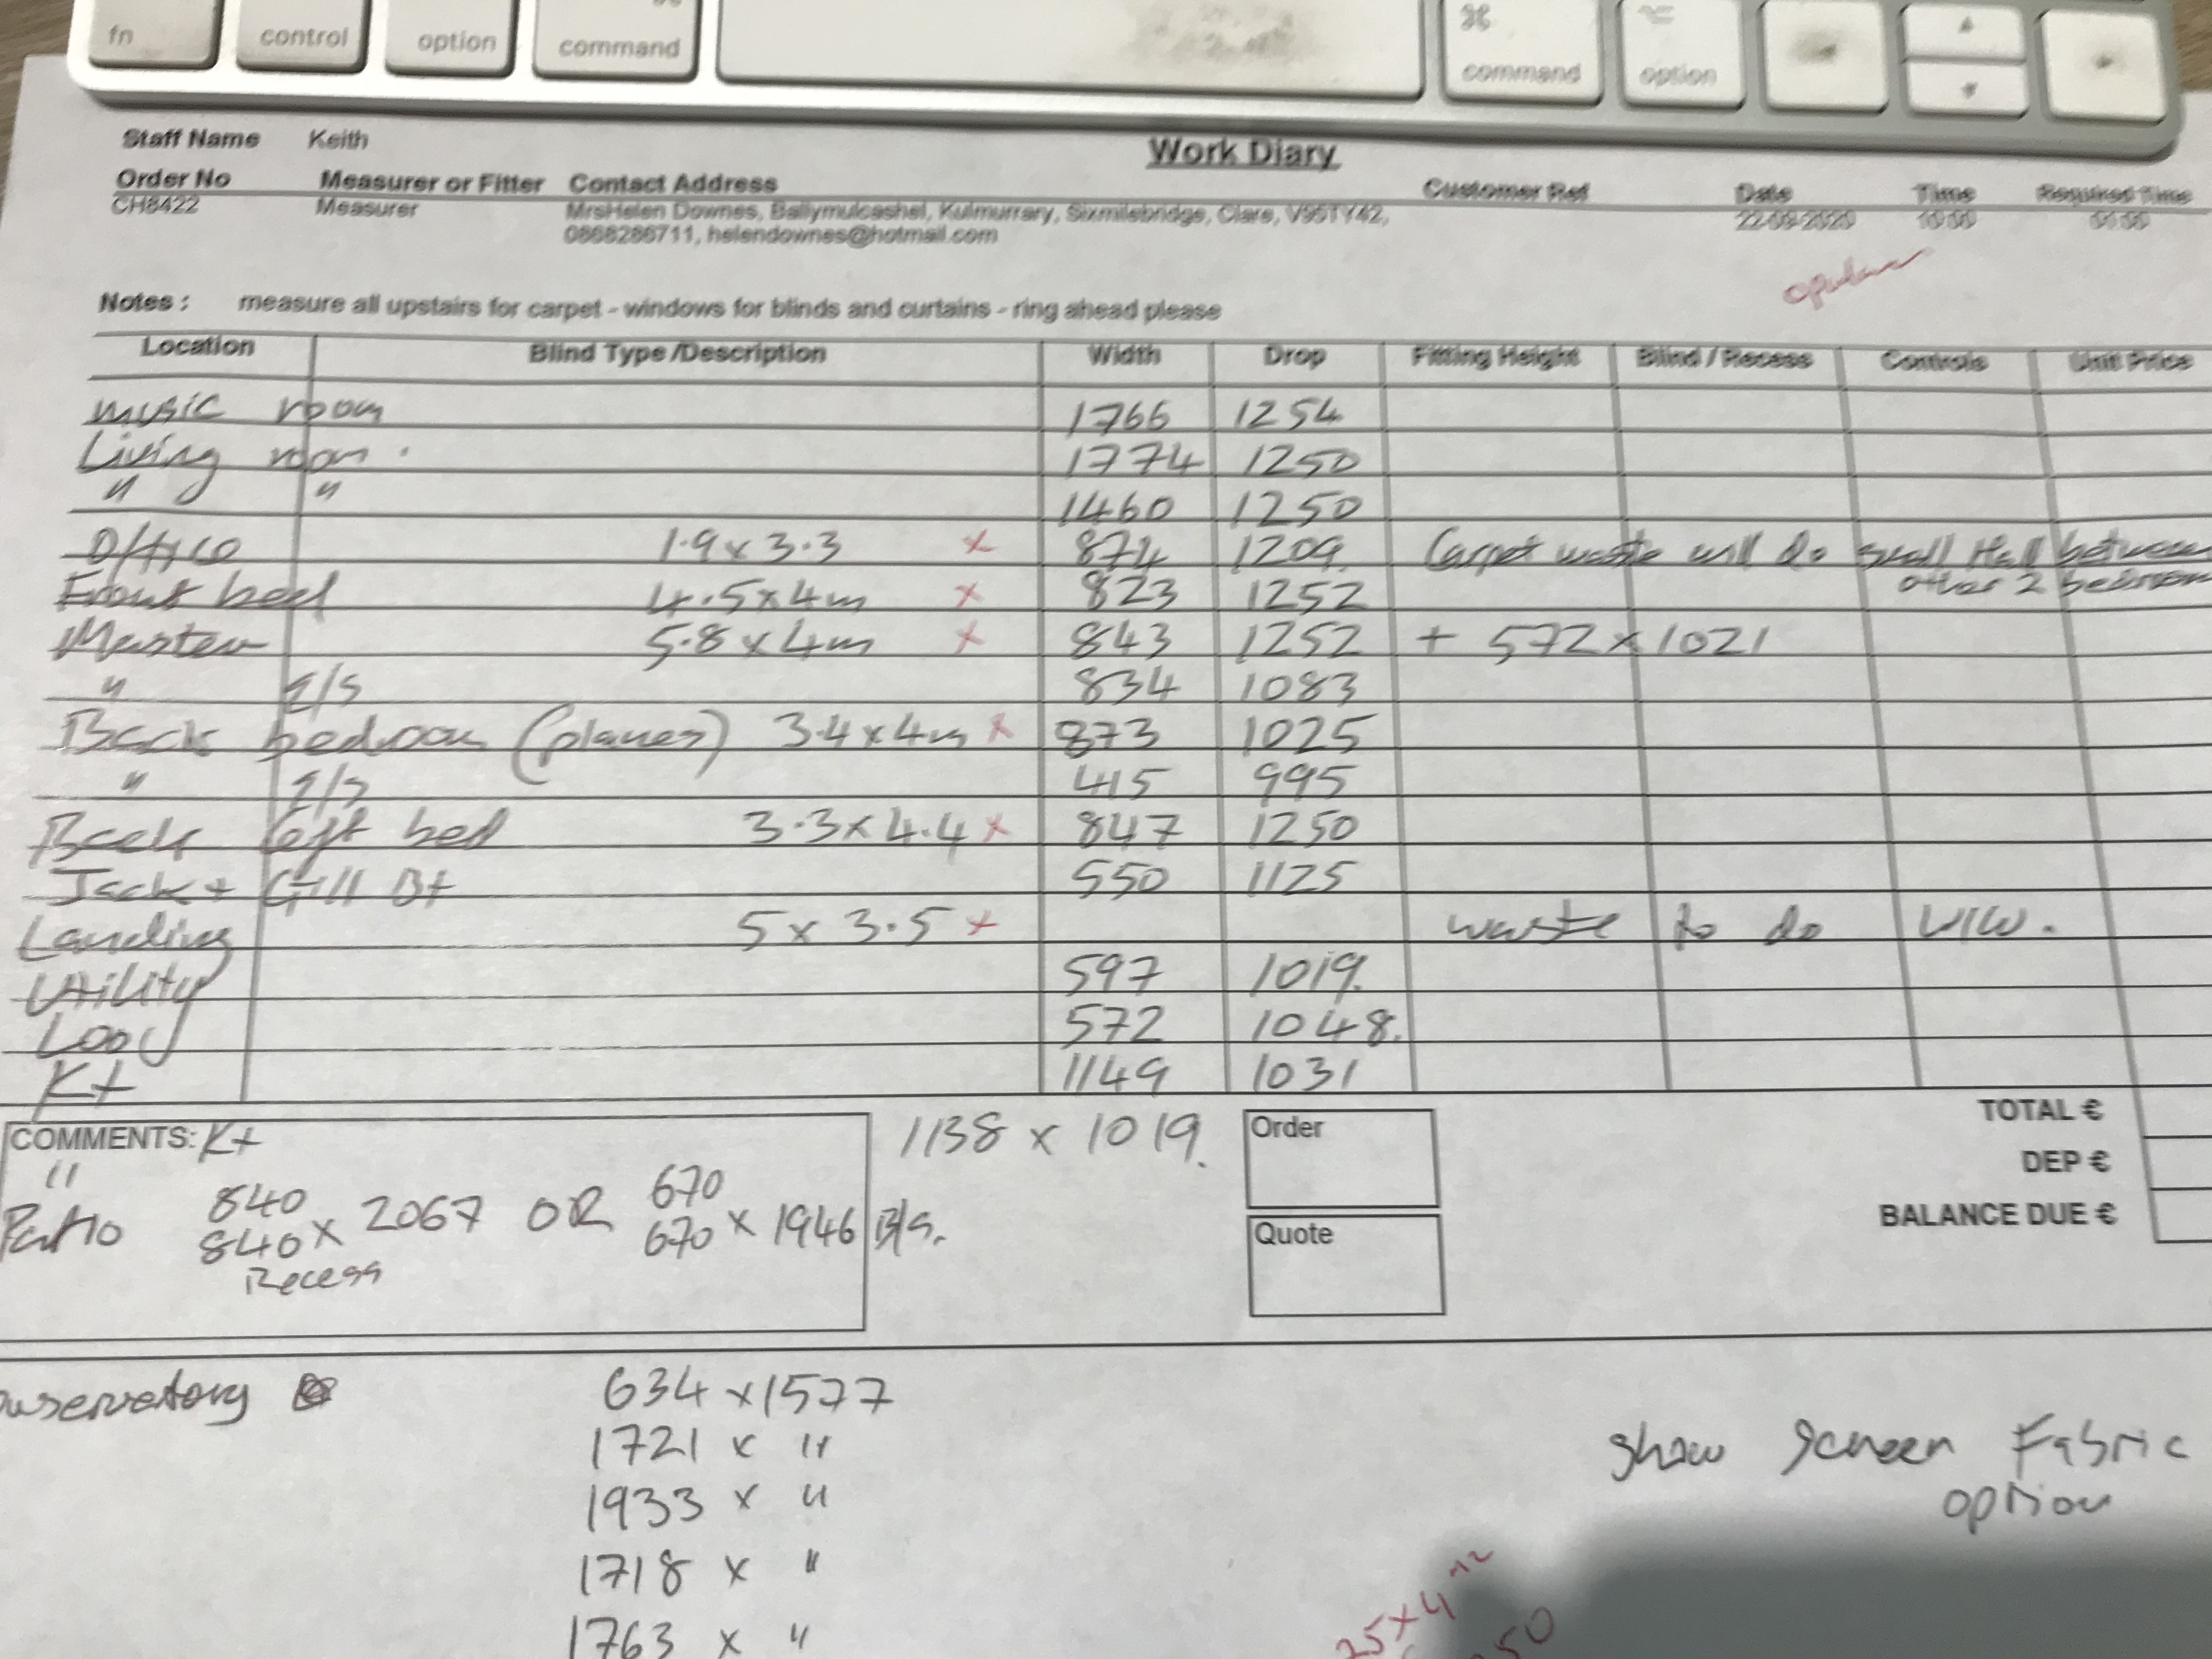 fn control option command ⌘ command option
Staff Name Keith
Work Diary
Order No Measurer or Fitter Contact Address Customer Ref Date Time Required Time
CH8422 Measurer MrsHelen Downes, Ballymulcashel, Kulmurrary, Sixmilebridge, Clare, V95TY42, 22-09-2020 10:00 01:00
0868286711, helendownes@hotmail.com
Notes : measure all upstairs for carpet - windows for blinds and curtains - ring ahead please
Location Blind Type /Description Width Drop Fitting Height Blind / Recess Controls Unit Price
music room 1766 1254
Living room 1774 1250
" " 1460 1250
Office 1.9 x 3.3 x 874 1209. Carpet waste will do small Hall between
other 2 bedroom
Front bed 4.5 x 4m x 823 1252
Master 5.8 x 4m x 843 1252 + 572 x 1021
" E/S 834 1083
Back bedroom (planes) 3.4 x 4m x 873 1025
" E/S 415 995
Back left bed 3.3 x 4.4 x 847 1250
Jack + Gill Bt 550 1125
Landing 5 x 3.5 x waste to do WIW.
Utility 597 1019.
Loo 572 1048.
Kt 1149 1031
COMMENTS: Kt 1138 x 1019. Order TOTAL €
" DEP €
Patio 840 840 x 2067 OR 670 670 x 1946 B/s. Quote BALANCE DUE €
Recess
onservatory 634 x 1577
1721 x "
1933 x "
1718 x "
1763 x "
Show Screen Fabric
option
25 x 4
50